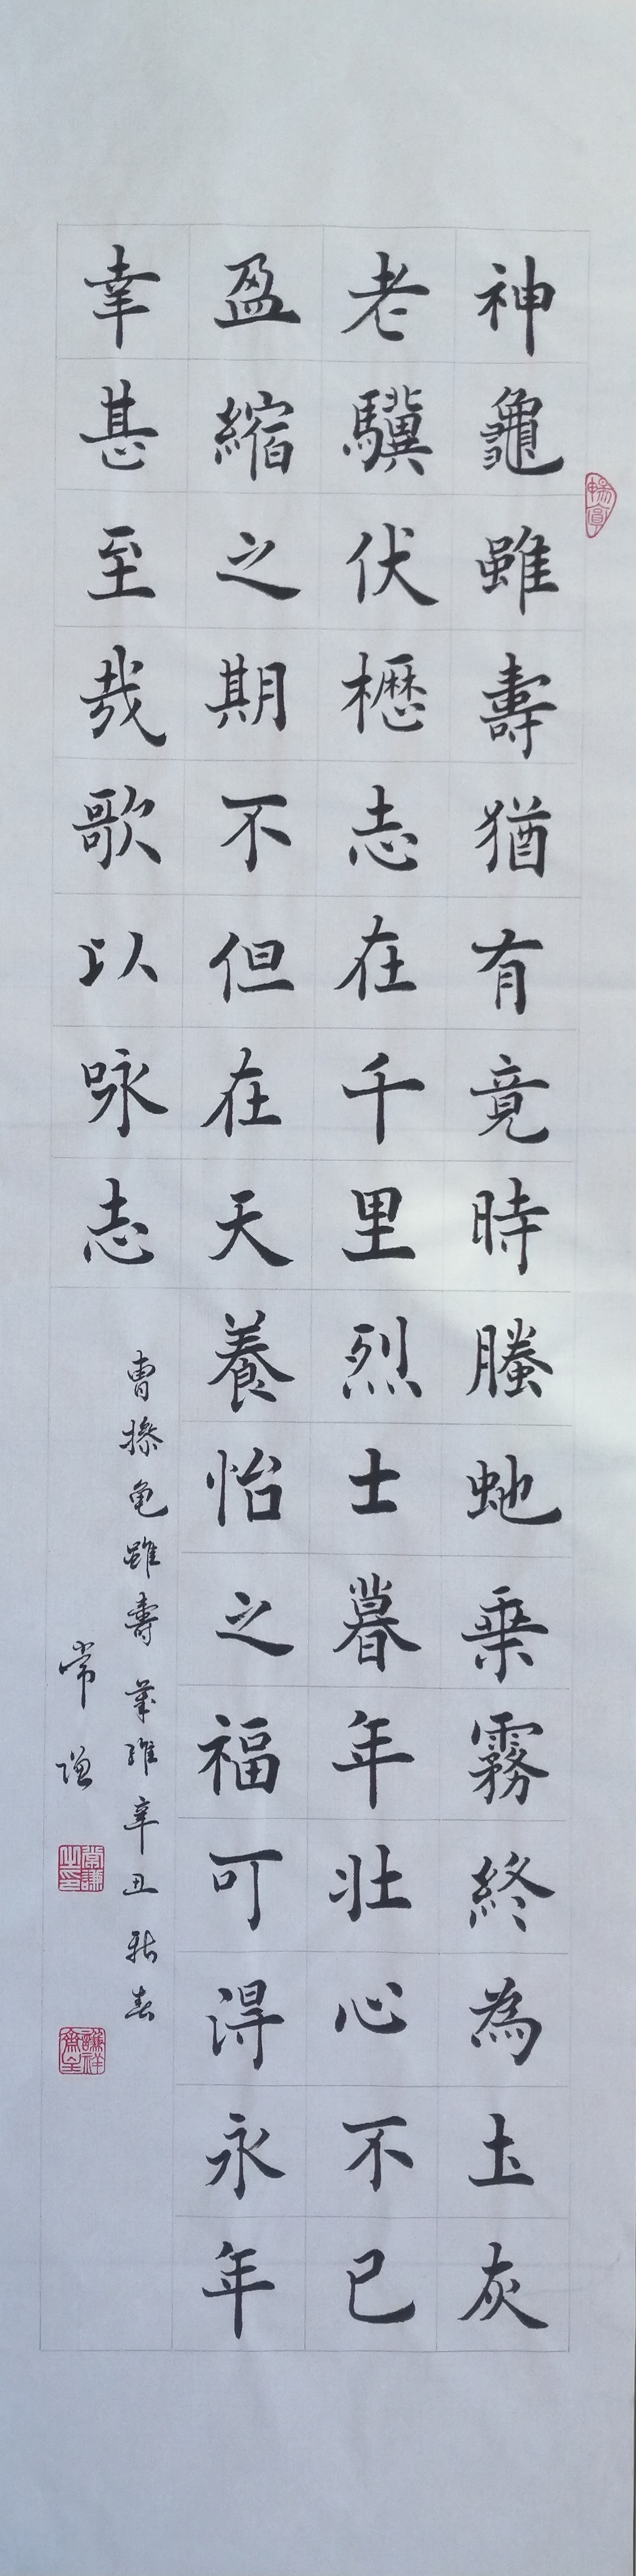 神龜雖壽猶有竟時螣虵乗霧終為土灰
老驥伏櫪志在千里烈士暮年壯心不已
盈縮之期不但在天養怡之福可淂永年
幸甚至哉歌以咏志
曹操龟雖壽歲維辛丑新春
常谦
常謙之印